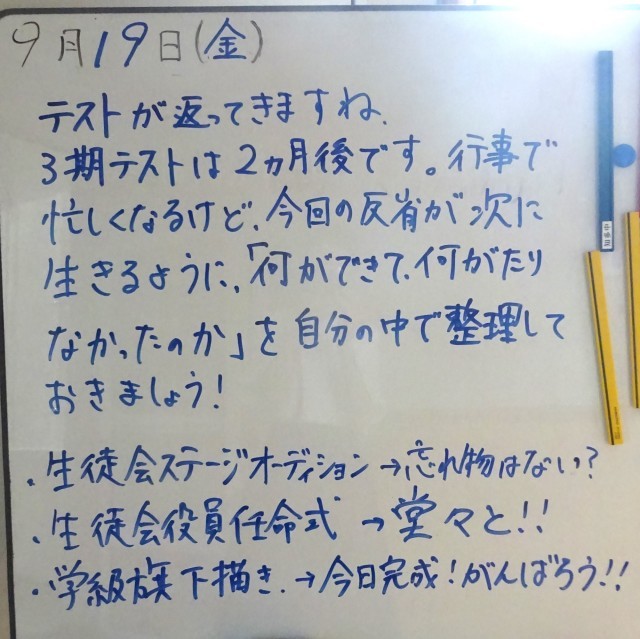 9月19日(金)
テストが返ってきますね.
3期テストは2ヵ月後です。行事で
忙しくなるけど、今回の反省が次に
生きるように、「何ができて、何がたり
なかったのか」を自分の中で整理して
おきましょう!
・生徒会ステージオーディション→忘れ物はない?
・生徒会役員任命式→堂々と!!
・学級旗下描き.→今日完成!がんばろう!!